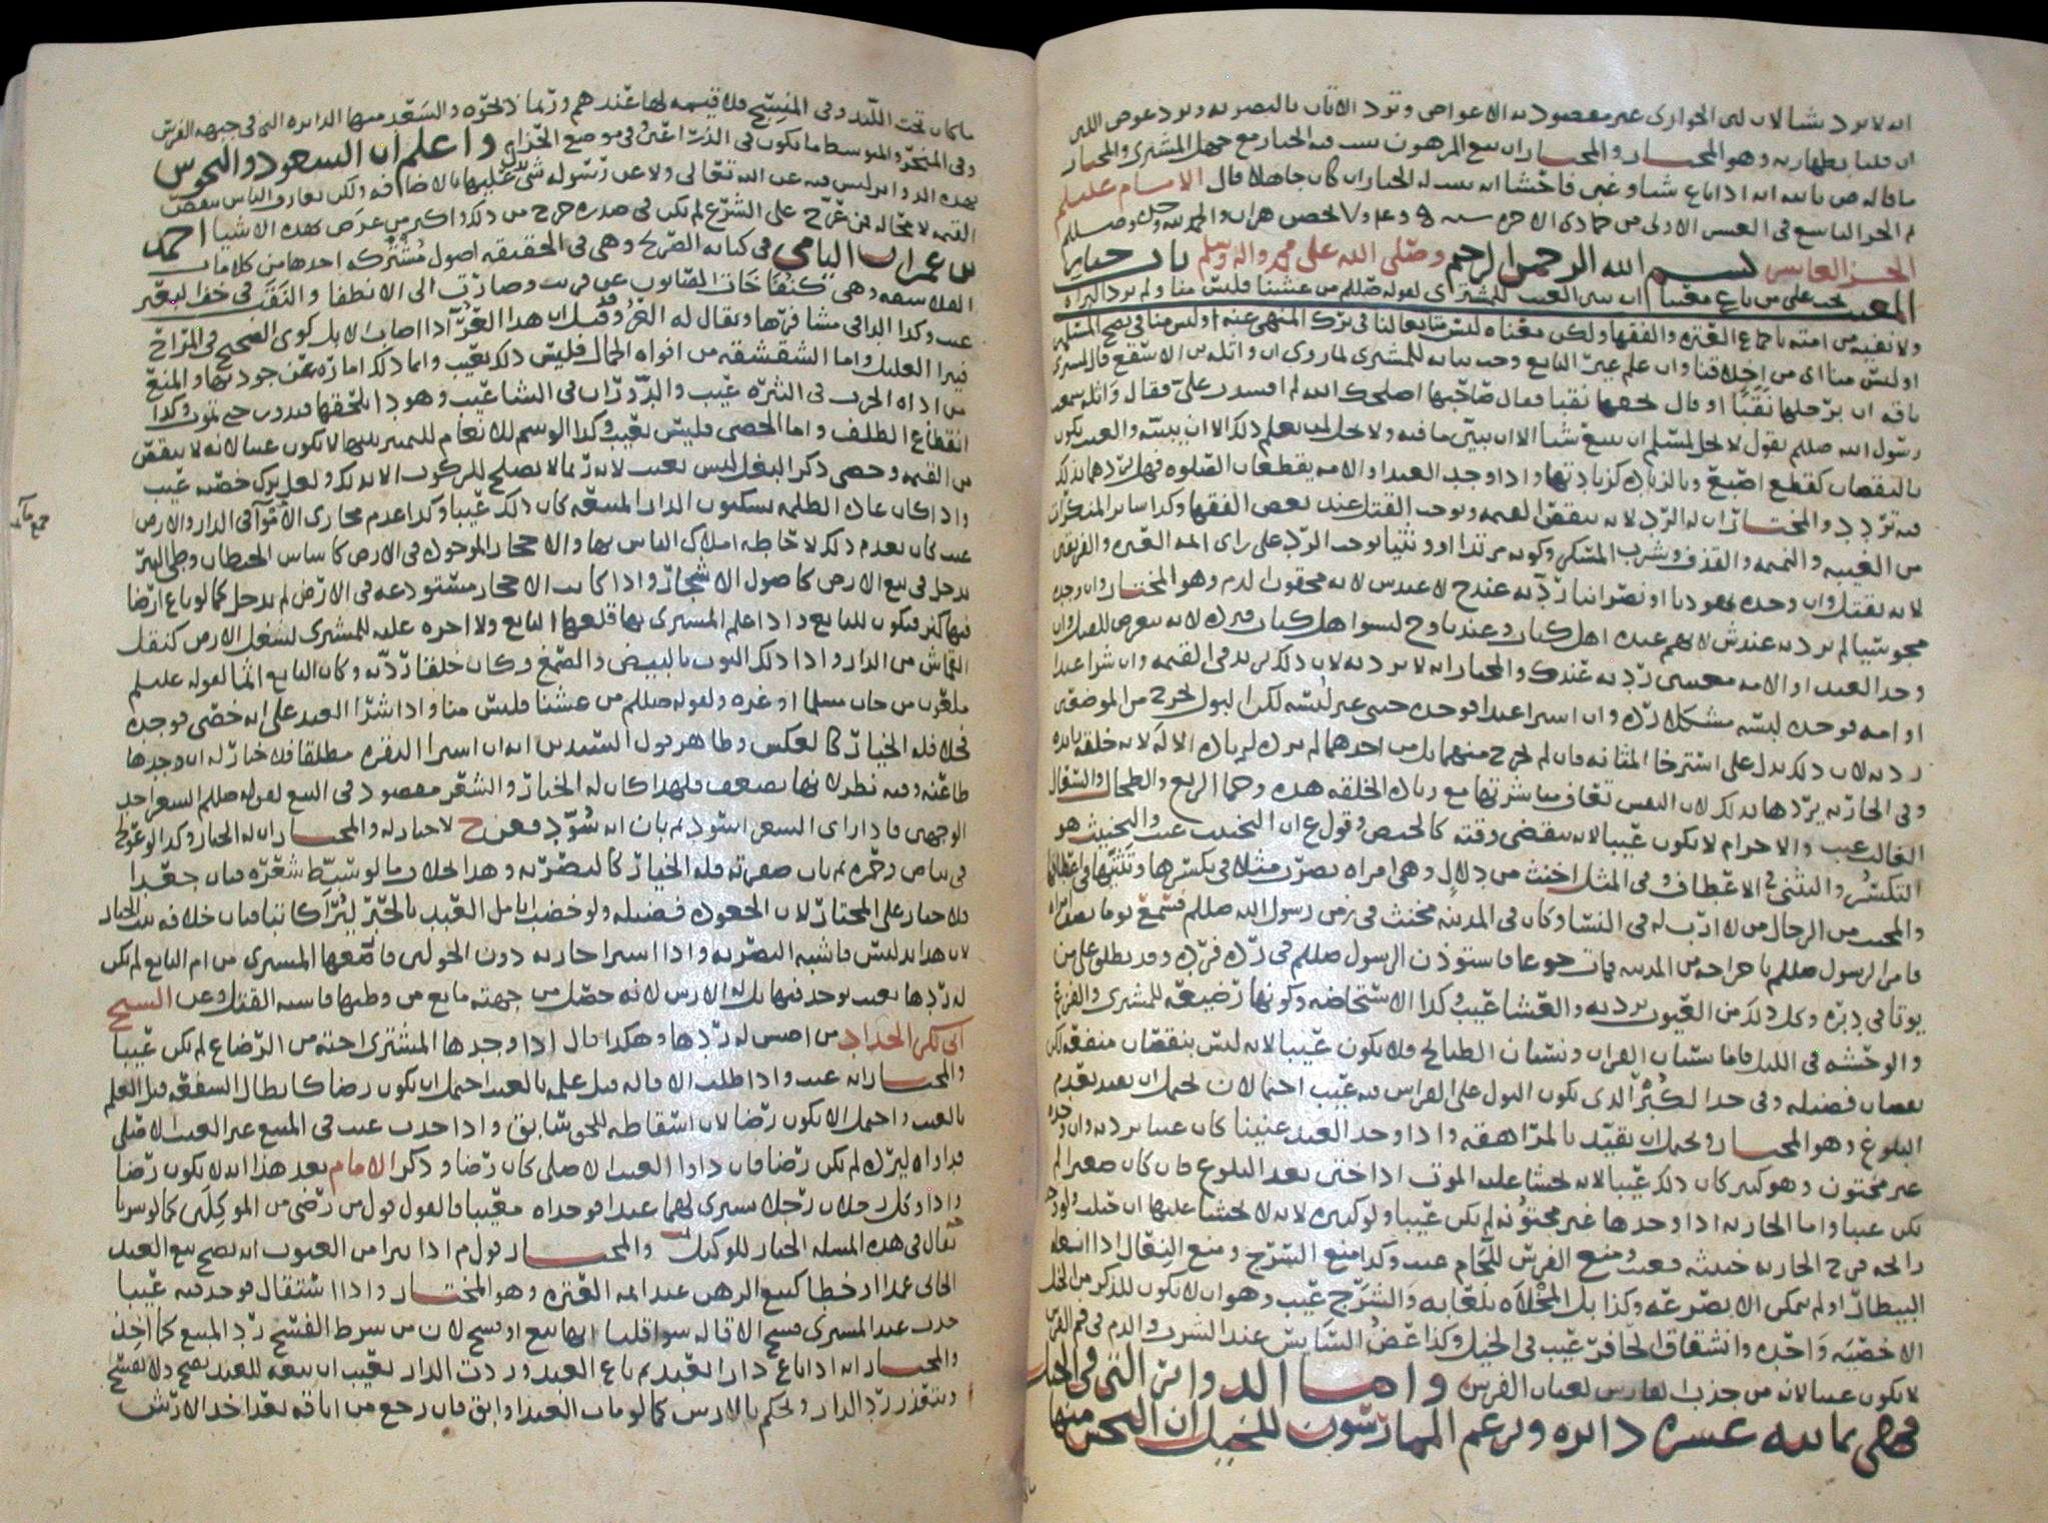 انه لا يرد شيئا لان لبن الجوارى غير مقصود به الاعواض وترد الاتان بالتصريه ويرد عوض اللبن
ان قلنا بطهارته وهو المختار والمختار ان بيع المرهون يثبت فيه الخيار مع جهل المشترى والمختار
ما قاله ص بالله انه اذا باع شيا وغبن فاحشا انه يثبت له الخيار ان كان جاهلا قال الامام عليلم
تم الجز التاسع فى العشر الاولى من جمادى الاخره سنه
الجز العاشر بسم الله الرحمن الرحيم وصلى الله على محمد واله وسلم باب خيار
المعيب يجب على من باع معيبا ان يبين العيب للمشترى لقوله صللم من غشنا فليس منا ولم يرد البراه
ولا نفيه من امته باجماع العتره والفقها ولكن معناه ليس متابعا لنا فى ترك المنهى عنه او ليس منا فى نصح المسلمين
او ليس منا اى من اخلاقنا وان علم غير البايع وجب بيانه للمشترى لما روى ان واثله بن الاسقع قال لمشترى
ناقه ان برجلها نقبا او قال بخفها نقبا فقال صاحبها اصلحك الله لم افسدت على فقال واثله سمعت
رسول الله صللم يقول لا يحل لمسلم ان يبيع شيا الا ان يبين ما فيه ولا يحل لمن يعلم ذلك الا ان يبينه والعيب يكون
بالنقصان كقطع اصبع وبالزياده كزيادتها واذا وجد العبد او الامه يقطعان الصلوه فهل يردهما بذلك
فيه تردد والمختار ان له الرد لانه ينقص القيمه ويوجب القتل عند بعض الفقها وكذا ساير المنكرات
من الغيبه والنميمه والقذف وشرب المسكر وكونه مرتدا او وثنيا يوجب الرد على راى ايمه العتره والفريقين
لانه يقتل وان وجده يهوديا او نصرانيا رد به عند ح لا عند س لانه محقون الدم وهو المختار وان وجده
مجوسيا لم يرد به عند ش
وجد العبد او الامه رد به عند ك والمختار انه لا يرد به لان ذلك يزيد فى القيمه وان شرا عبدا
او امه فوجده لبسه مشكل رده وان اشترا عبدا فوجده خنثى غير لبسه لكن البول يخرج من الموضعين
رد به لان ذلك يدل على استرخا المثانه فان لم يخرج منهما بل من احدهما لم يرد لزياده الاله لانه خلقه زايده
وفى الجاريه يردها بذلك لان النفس تعاف مباشرتها مع زياده الخلقه هذه وحما الربع والطحال والسعال
الغالب عيب والاحرام لا يكون عيبا لانه ينقضى وقته كالحيض وقول ع ان التخنيث عيب والتخنيث هو
التكسر والتثنى فى الاعطاف وفى المثل اخنث من دلال وهى امراه يضرب مثلا فى تكسرها وتثنيها فى اعطافها
والمخنث من الرجال من لا ارب له فى النسا وكان فى المدينه مخنث فى زمن رسول الله صللم فسمع يوما يصف امراه
فامر الرسول صللم باخراجه من المدينه فمات جوعا فاستوذن الرسول صللم فى رده فرده وقد يطلق على من
يوتا فى دبره وكل ذلك من العيوب يرد به والعشا عيب وكذا الاستحاضه وكونها رضيعه للمشترى والفزع
والوحشه فى الليل فاما نسيان القران ونسيان الطبايخ فلا يكون عيبا لانه ليس بنقصان منفعه لكن
نقصان فضيله وفى حد الكبر الذى يكون البول على الفراش فيه عيب احتمالان يحتمل ان يعتد بعدم
البلوغ وهو المختار ويحتمل ان يقيد بالمراهقه واذا وجد العبد عنينا كان عيبا يرد به وان وجده
غير مختون وهو كبير كان ذلك عيبا لانه يخشا عليه الموت اذا ختن بعد البلوغ فان كان صغيرا لم
يكن عيبا واما الجاريه اذا وجدها غير مختونه لم يكن عيبا ولو كبيره لانه لا يخشا عليها ان ختنت ولو وجد
رايحه فرج الجاريه خبيثه فعيب ومنع الفرس للجام عيب وكذا منع السرج ومنع النعال اذا انعله
البيطار او لم يمكن الا بصرعه وكذا بل المخلاه بلعابه والشرج عيب وهو ان لا يكون للذكر من الخيل
الا خصيه واحده وانشقاق الحافر عيب فى الخيل وكذا عض السايس عند الشرب والدم فى فم الفرس
لا يكون عيبا لانه من جذب الفارس لعنان الفرس واما الدواير التى فى الخيل
فهى ثمانيه عشره دايره ويزعم الممارسون للخيل ان النحس منها
ما كان تحت اللبد وفى المنسج فلا قيمه لها عندهم وربما والسعد منها الدايره التى فى جبهه الفرس
وفى المنحر والمتوسط ما يكون فى الذراعين وفى موضع الحزام واعلم ان السعود والنحوس
بهذه الدواير ليس فيه عن الله تعالى ولا عن رسوله شى يدل عليها بالاضافه ولكن تعارف الناس بنقص
القيمه لا محاله فمن عرج على الشرع لم يكن فى صدره حرج من ذلك واكثر من عرض لهذه الاشيا احمد
بن عمران اليامى فى كتابه الصريح وهى فى الحقيقه اصول مشتركه احدها من كلامات
الفلاسفه وهى كنفاخات وصارت الى الانطفا والنقب فى خف البعير
عيب وكذا الدا فى مشافرها ويقال له العر وقيل ان هذا العر اذا اصاب الابل كوى الصحيح فى المراح
فيبرا العليل واما الشقشقه من افواه الجمال فليس ذلك بعيب وانما ذلك اماره عن جودتها والمنع
من اداه الحرث فى الثيره عيب والدوران فى الشا عيب وهو دا يلحقها فيدور حتى تموت وكذا
انقطاع الظلف واما الخصى فليس بعيب وكذا الوسم للانعام للتمييز بينها لا يكون عيبا لانه لا ينقص
من القيمه وخصى ذكر البغل ليس بعيب لانه ربما لا يصلح للركوب الا بذلك ولعل ترك خصيه عيب
واذا كان عاده الظلمه يسكنون الدار المبيعه كان ذلك عيبا وكذا عدم مجارى الاقوا فى الدار والارض
عيب فان بعدم ذلك لاحاطه املاك الناس بها والاحجار الموجوده فى الارض كاساس الحيطان وطى البير
يدخل فى بيع الارض كاصول الاشجار واذا كانت الاحجار مستودعه فى الارض لم يدخل كما لو باع ارضا
فيها كنز فيكون للبايع واذا علم المشترى بها قلعها البايع ولا اجره عليه للمشترى لشغل الارض كنقل
القماش من الدار واذا دلك الثوب بالبيض والصمغ وكان خلقا رد به وكان البايع اثما لقوله عليلم
ملعون من خان مسلما او غره ولقوله صللم من غشنا فليس منا واذا شرا العبد على انه خصى فوجده
فحلا فله الخيار كالعكس وظاهر قول السيدين انه ان اشترا البقره مطلقا فلا خيار له ان وجدها
طاعنه وفيه نظر لانها تضعف فلهذا كان له الخيار والشعر مقصود فى البيع لقوله صللم الشعر احد
الوجهين فاذا راى الشعر اسود ثم بان انه سود فعن ح لا خيار له والمختار ان له الخيار وكذا لو غره
فى بياض وحمره ثم بان صفرته فله الخيار كالتصريه وهذا بخلاف ما لو سبط شعره فبان جعدا
فلا خيار على المختار لان الجعوده فضيله ولو خضب انامل العبد بالحبر ليرا كاتبا فبان خلافه ثبت الخيار
لان هذا تدليس فاشبه التصريه واذا اشترا جاريه دون الحولين فارضعها المشترى من ام البايع لم يكن
له ردها بعيب يوجد فيها بل له الارش لانه حصل من جهته مانع من وطيها فاشبه القتل وعن الشيخ
ابى بكر الحداد من اصحش له ردها وهكذا قال اذا وجدها المشترى اخته من الرضاع لم يكن عيبا
والمختار انه عيب واذا طلب الاقاله قبل علمه بالعيب احتمل ان يكون رضا كابطال الشفعه قبل العلم
بالعيب واحتمل الا يكون رضا لان اسقاطه للحق سابق واذا حدث عيب فى المبيع غير العيب الاصلى
فداواه ليرده لم يكن رضا فان داوا العيب الاصلى كان رضا وذكر الامام بعد هذا انه لا يكون رضا
واذا وكل رجلان رجلا يشترى لهما عبدا فوجداه معيبا فالقول قول من رضى من الموكلين كما لو شريا
يقال فى هذه المسله الخيار للوكيل والمختار قول م اذا تبرا من العيوب انه يصح بيع العبد
الجانى عمدا او خطا كبيع الرهن عند ايمه العتره وهو المختار واذا استقال فوجد فيه عيبا
حدث عند المشترى فسخ الاقاله سوا قلنا انها بيع او فسخ لان من شرط الفسخ رد المبيع كما اخذ
والمختار انه اذا باع دارا بعبد ثم باع العبد وردت الدار بعيب ان بيعه للعبد يصح ولا يفسخ
ويتعذر رد الدار ويحكم بالارش كما لو مات العبد او ابق فان رجع من اباقه بعد اخذ الارش